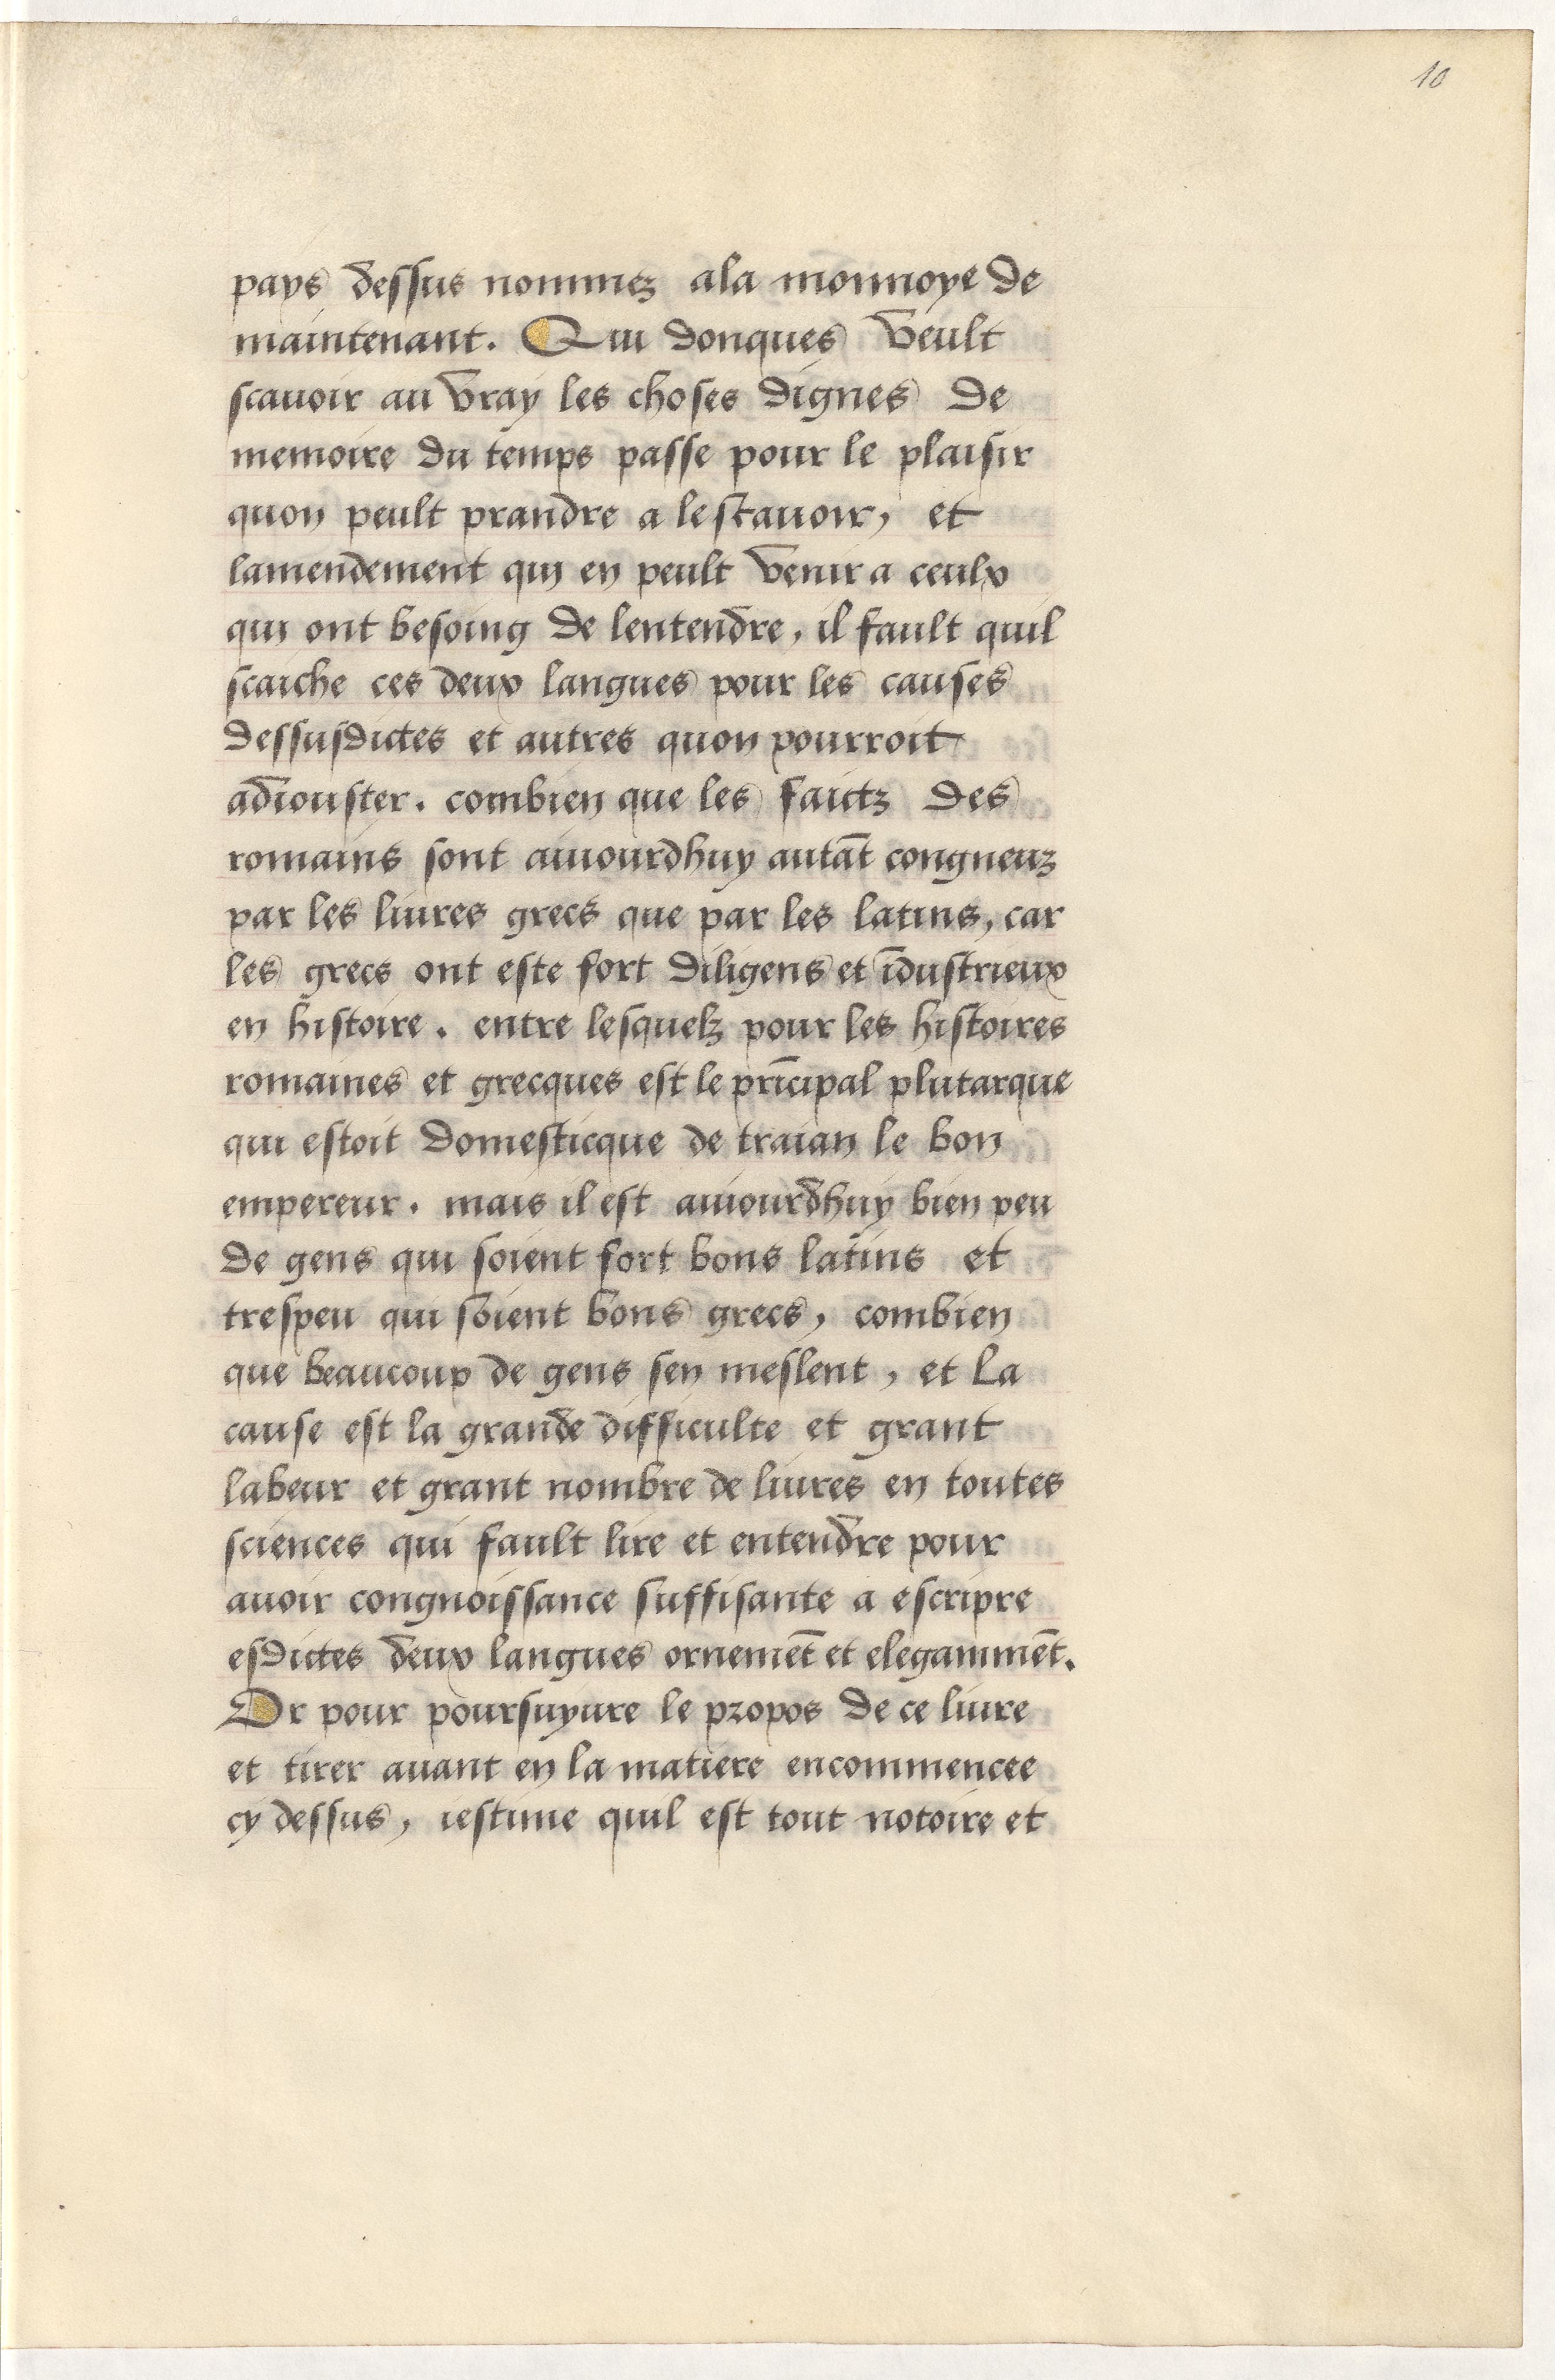 10
pays dessus nommez ala monnoye de
maintenant. Qui donques veult
scauoir au vray les choses dignes de
memoire du temps passe pour le plaisir
quon peult prandre a lescauoir, et
lamendement qui en peult venir a ceulx
qui ont besoing de lentendre, il fault quil
scaiche ces deux langues pour les causes
dessusdictes et autres quon pourroit
adiouster. combien que les faictz des
romains sont auiourdhuy autāt congneuz
par les liures grecs que par les latins, car
les grecs ont este fort diligens et īdustrieux
en histoire. entre lesquelz pour les histoires
romaines et grecques est le prīcipal plutarque
qui estoit domesticque de traian le bon
empereur. mais il est auiourdhuy bien peu
de gens qui soient fort bons latins et
trespeu qui soient bons grecs, combien
que beaucoup de gens sen meslent, et la
cause est la grande difficulte et grant
labeur et grant nombre de liures en toutes
sciences qui fault lire et entendre pour
auoir congnoissance suffisante a escripre
esdictes deux langues ornemēt et elegammēt.
Or pour poursuyure le propos de ce liure
et tirer auant en la matiere encommencee
cy dessus, iestime quil est tout notoire et